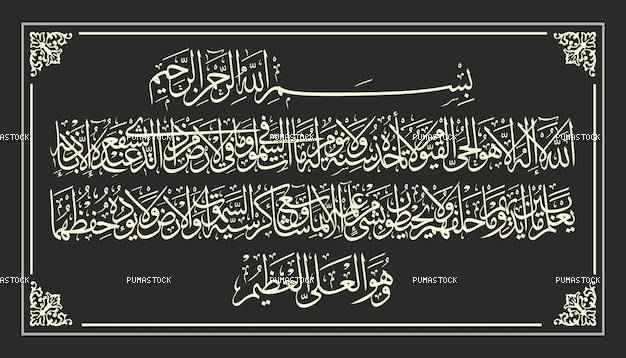 بسم الله الرحمن الرحيم
الله لا إله إلا هو الحي القيوم لا تأخذه سنة ولا نوم له ما في السموات وما في الأرض من ذا الذي يشفع عنده إلا بإذنه
يعلم ما بين أيديهم وما خلفهم ولا يحيطون بشيء من علمه إلا بما شاء وسع كرسيه السموات والأرض ولا يؤده حفظهما
وهو العلي العظيم
PUMASTOCK PUMASTOCK PUMASTOCK PUMASTOCK
PUMASTOCK PUMASTOCK PUMASTOCK PUMASTOCK